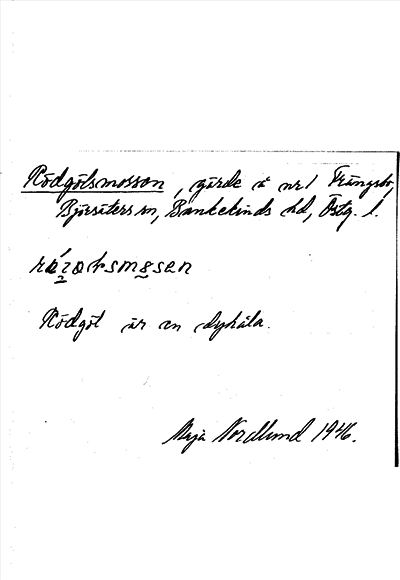 Rödgölsmosson, gärde å nr 1 Trångsbo,
Björsäters sn, Bankekinds hd, Östg. l.
Rödgöl är en dyhåla.
Maja Nordlund 1946.